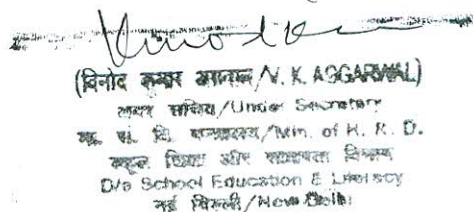 (विनोद कुमार अग्रवाल/V. K. AGGARWAL)
अवर सचिव/Under Secretary
मा. सं. वि. मन्त्रालय/Min. of H. R. D.
स्कूल शिक्षा और साक्षरता विभाग
D/o School Education & Literacy
नई दिल्ली/New Delhi